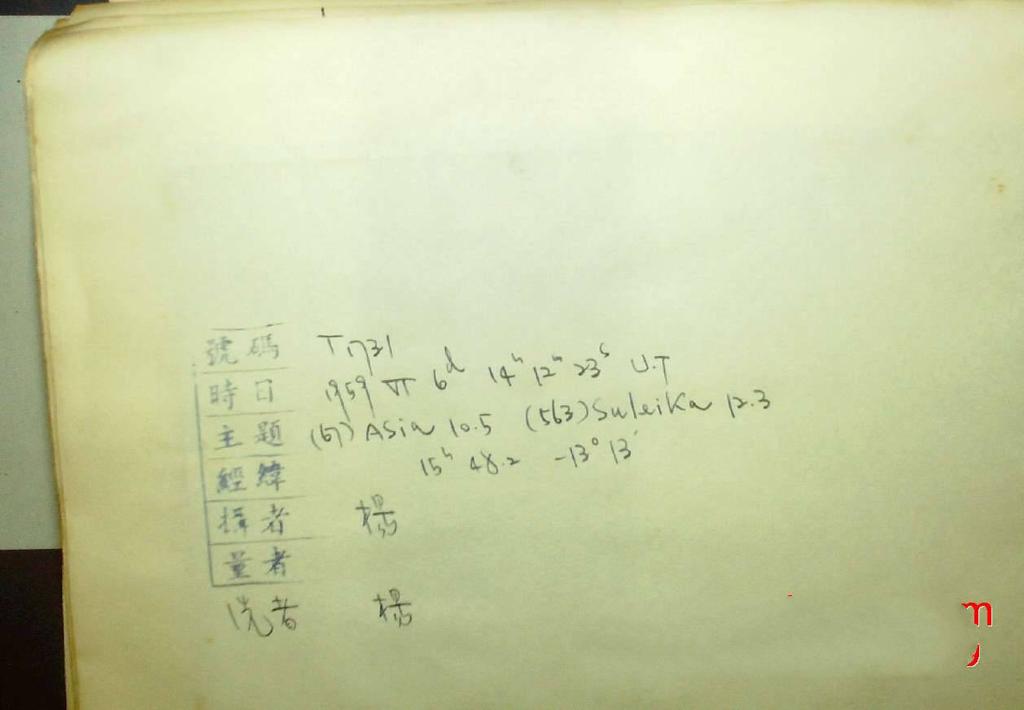 號碼 T1731
時日 1959 VI 6d 14h 12m 23s U.T
主題 (67) Asia 10.5 (563) Suleika 12.3
經緯 15h 48.2 -13° 13'
攝者 楊
量者
洗者 楊